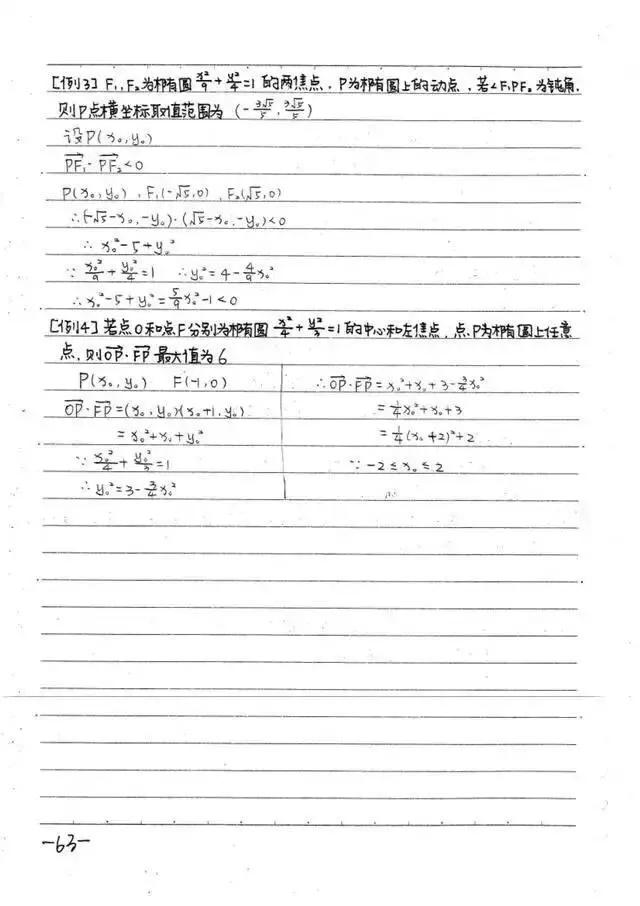 [例3] F₁,F₂为椭圆x²/9+y²/4=1的两焦点,P为椭圆上的动点,若∠F₁PF₂为钝角,
则P点横坐标取值范围为 (-3√5/5, 3√5/5)
设P(x₀,y₀)
PF₁·PF₂<0
P(x₀,y₀),F₁(-√5,0),F₂(√5,0)
∴(-√5-x₀,-y₀)·(√5-x₀,-y₀)<0
∴x₀²-5+y₀²
∵x₀²/9+y₀²/4=1 ∴y₀²=4-4/9x₀²
∴x₀²-5+y₀²=5/9x₀²-1<0
[例4] 若点O和点F分别为椭圆x²/4+y²/3=1的中心和左焦点,点P为椭圆上任意
点,则OP·FP最大值为6
P(x₀,y₀) F(-1,0)
OP·FP=(x₀,y₀)(x₀+1,y₀)
=x₀²+x₀+y₀²
∵x₀²/4+y₀²/3=1
∴y₀²=3-3/4x₀²
∴OP·FP=x₀²+x₀+3-3/4x₀²
=1/4x₀²+x₀+3
=1/4(x₀+2)²+2
∵-2≤x₀≤2
-63-